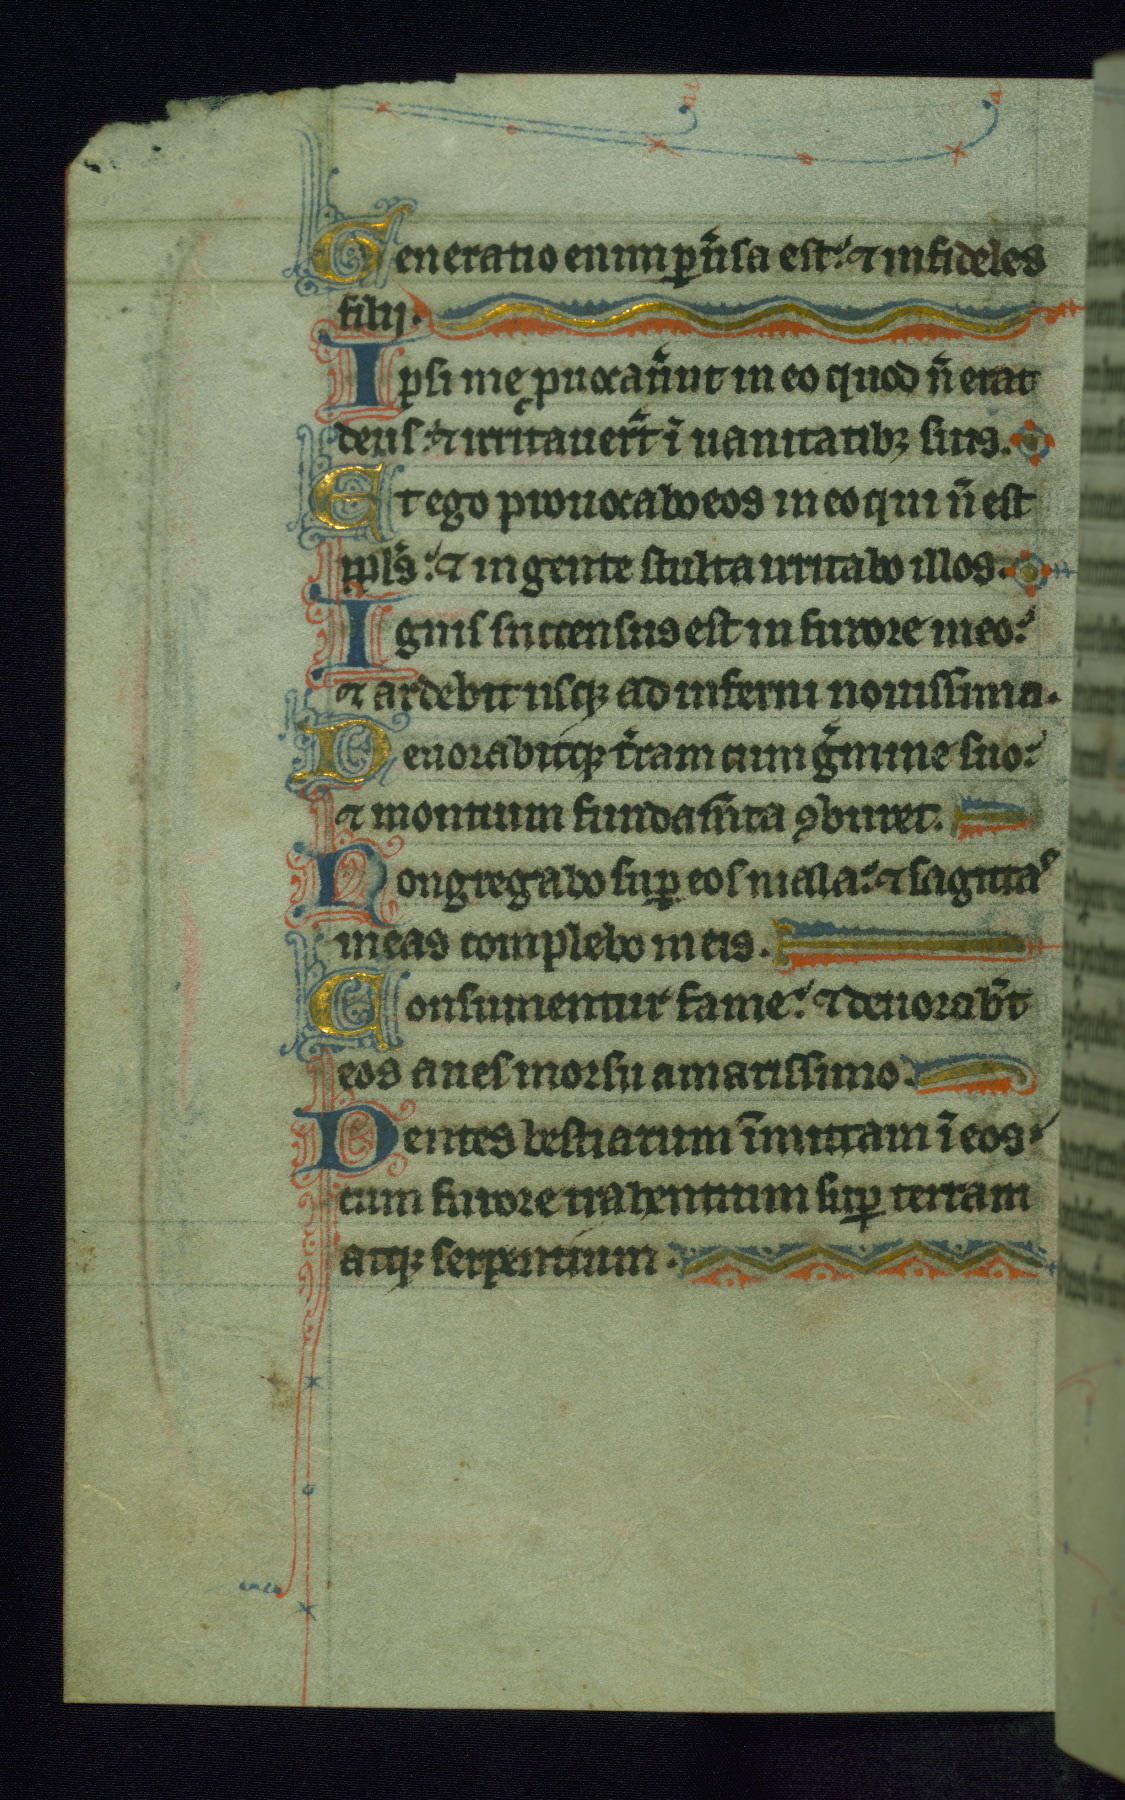 Generatio enim ꝑũsa est: ⁊ infideles
filij.
Ipsi me ꝓuocar̃unt in eo quod ñ erat
deus: ⁊ irritauer̃t ĩ uanitatibꝫ suis.
Et ego prouocabo eos in eo qui ñ est
ppl̃s: ⁊ in gente stulta irritabo illos.
Ignis succensus est in furore meo:
⁊ ardebit usqꝫ ad inferni nouissima.
Deuorabitqꝫ t̃ram cum g̃mine suo:
⁊ montium fundam̃ta ꝯburet.
Congregabo suꝑ eos mala: ⁊ sagittas
meas complebo in eis.
Consumentur fame: ⁊ deuorab̃t
eos aues morsu amarissimo.
Dentes bestiarum ĩmittam ĩ eos:
cum furore trahentium suꝑ terram
atqꝫ serpentium.